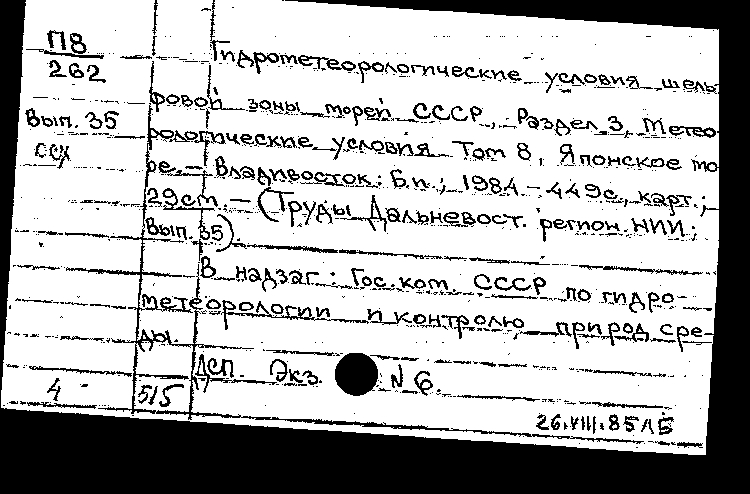 П8
262
Вып. 35
ССХ
Гидрометеорологические условия шель
фовой зоны морей СССР, Раздел 3, Метео
рологические условия Том 8, Японское мо
ре. – Владивосток: Б.и., 1984 – 449с., карт.;
29см. – (Труды Дальневост. регион. НИИ;
Вып. 35).
В надзаг: Гос. ком. СССР по гидро-
метеорологии и контролю природ. сре-
ды.
ДСП. Экз. N 6.
4 515
26.VIII.85 ЛБ